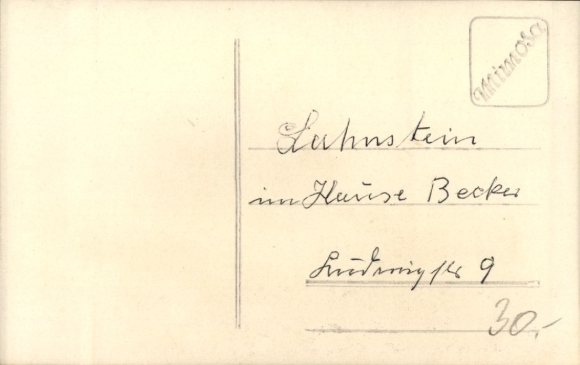 Mimosa
Lahnstein
im Hause Becker
Ludwigstr 9
30.-